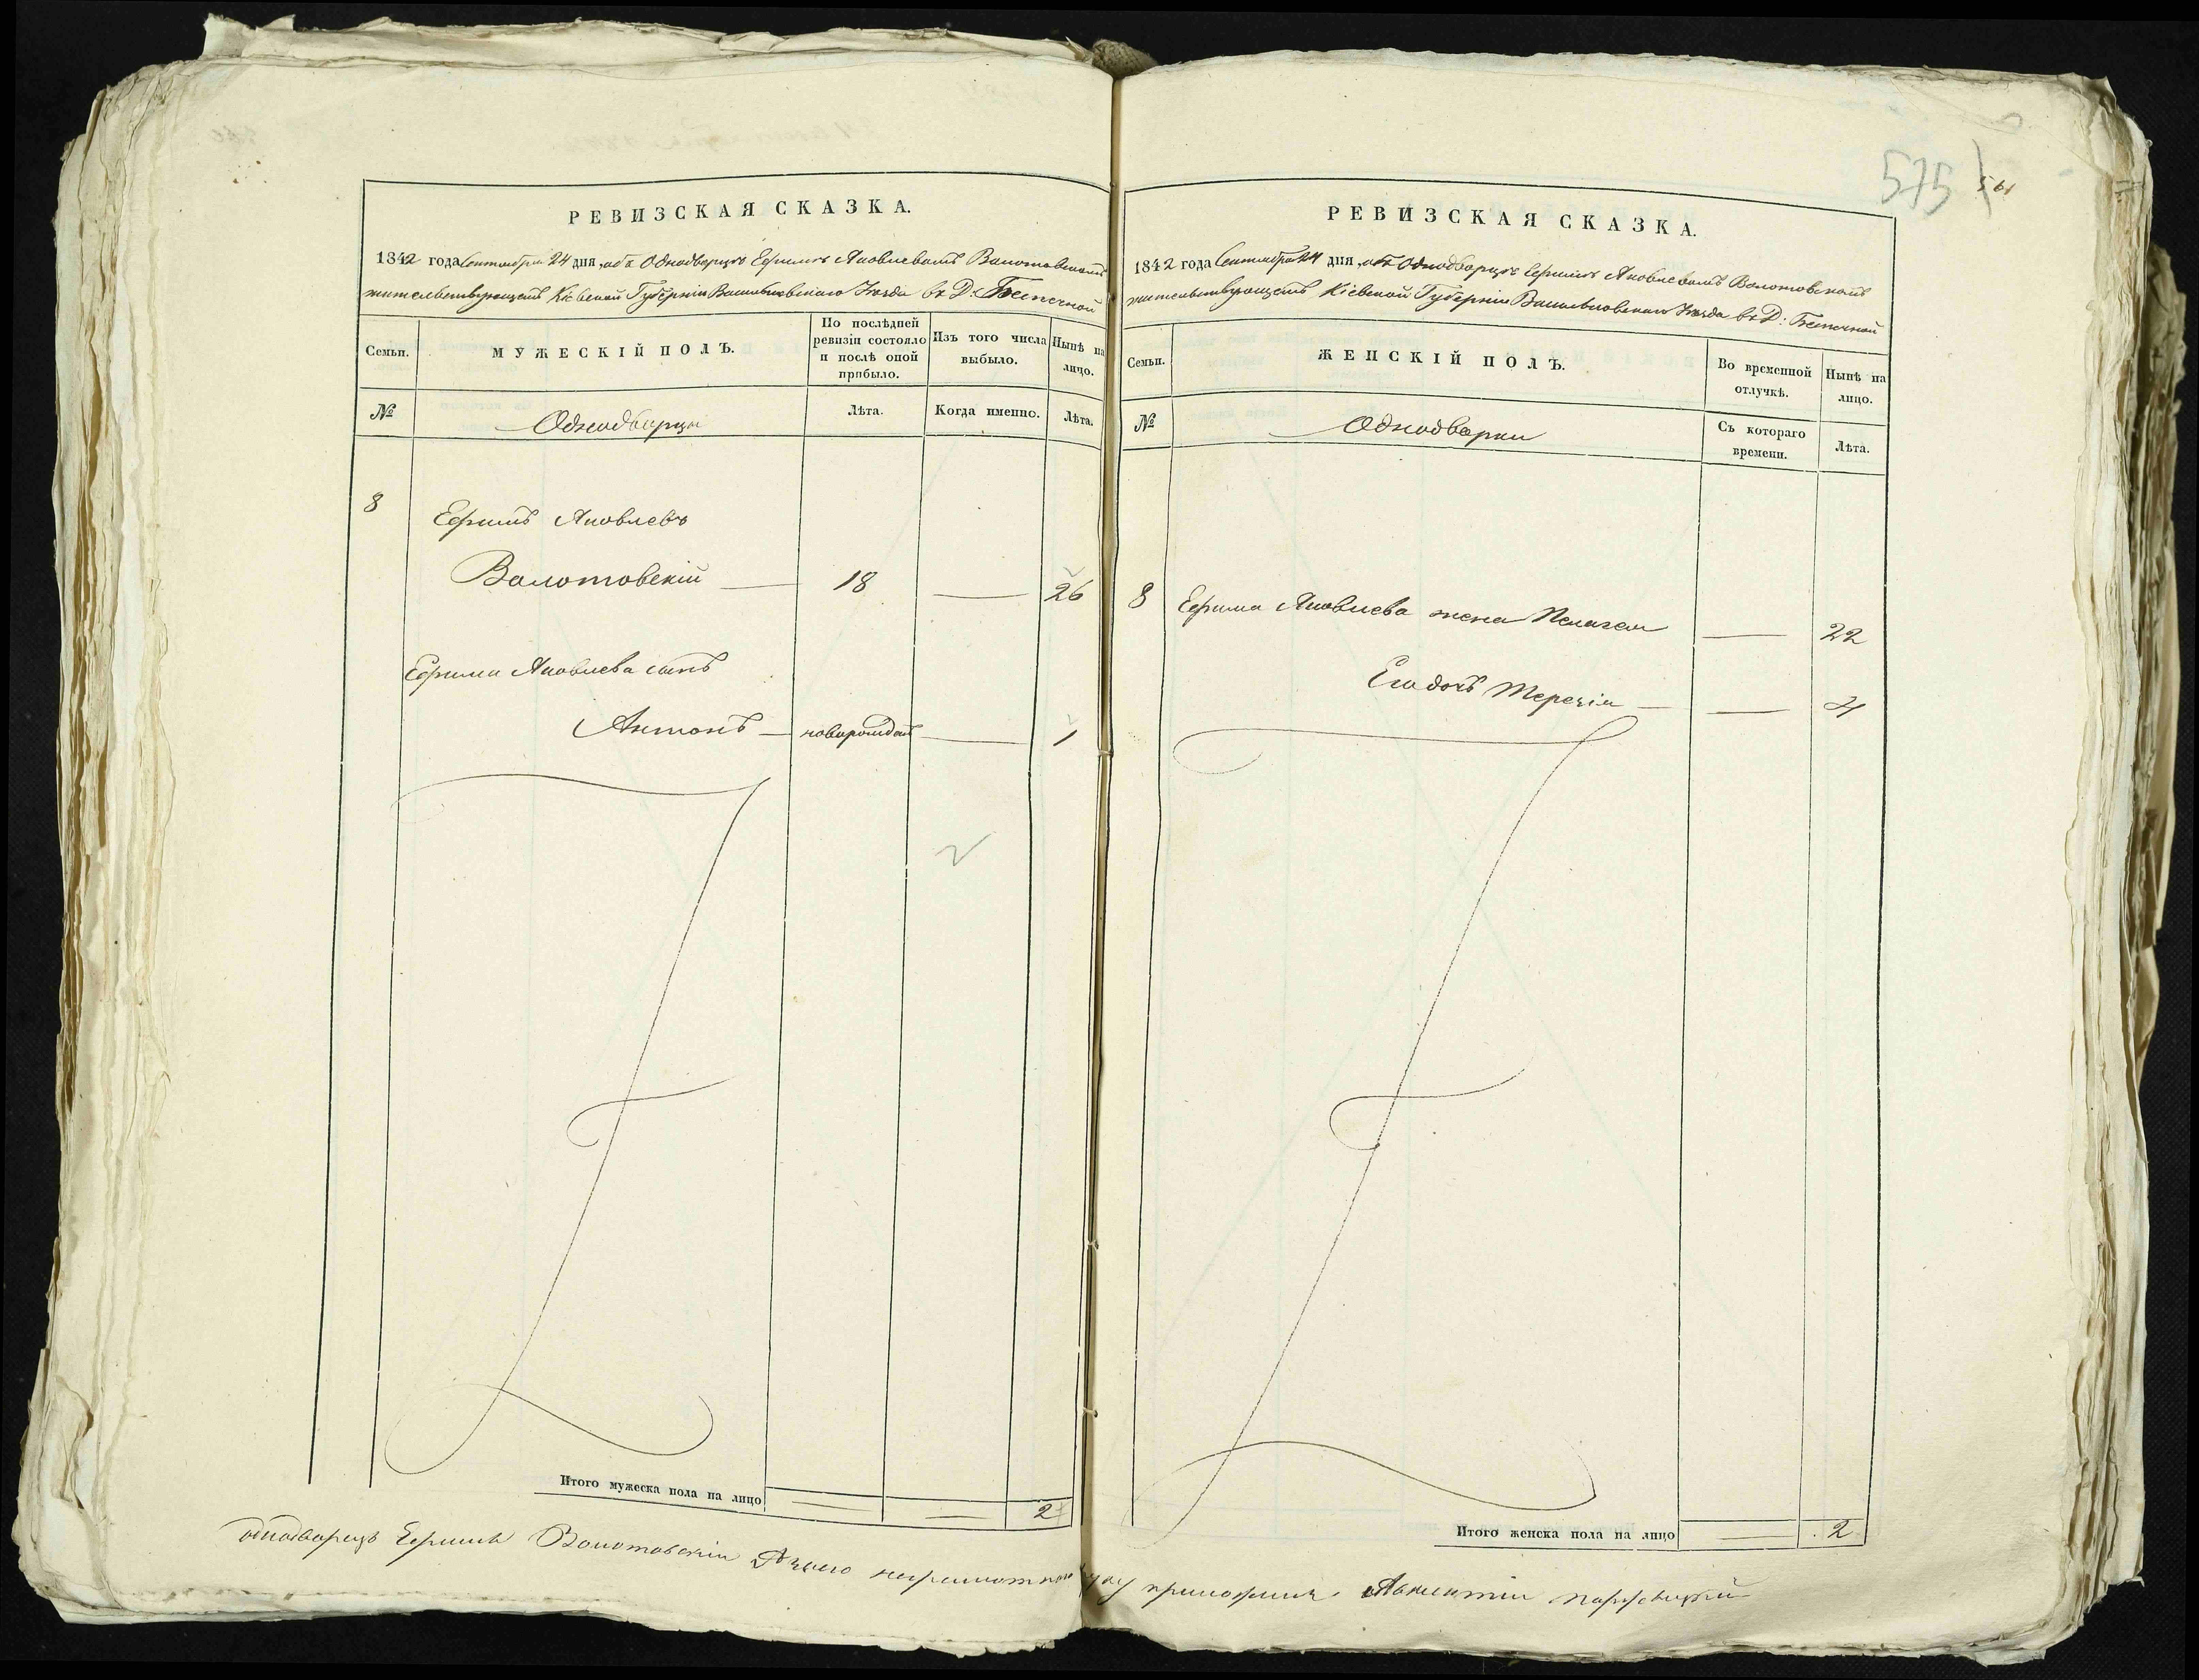 РЕВИЗСКАЯ СКАЗКА.
1842 года Сентября 24 дня, объ Однодворцѣ Ефимѣ Яковлевомъ Волотовскомъ
жительствующемъ Кіевской Губерніи Васильковскаго Уѣзда въ Д:
Семьи.
МУЖЕСКІЙ ПОЛЪ.
По послѣдней ревизіи состояло и послѣ оной прибыло.
Изъ того числа выбыло.
Нынѣ на лицо.
№
Однодворцы
Лѣта.
Когда именно.
Лѣта.
8
Ефимъ Яковлевъ
Волотовскій 18 26
Ефима Яковлева сынъ
Антонъ новорожден 1
Итого мужеска пола на лицо 2
575
561
РЕВИЗСКАЯ СКАЗКА.
1842 года Сентября 24 дня, объ Однодворцѣ Ефимѣ Яковлевомъ Волотовскомъ
жительствующемъ Кіевской Губерніи Васильковскаго Уѣзда въ Д:
Семьи.
ЖЕНСКІЙ ПОЛЪ.
Во временной отлучкѣ.
Нынѣ на лицо.
№
Однодворки
Съ котораго времени.
Лѣта.
8 Ефима Яковлева жена Пелагея 22
Его дочь Терезія 4
Итого женска пола на лицо 2
однодворецъ Ефимъ Волотовскій а за него неграмотнаго руку приложилъ